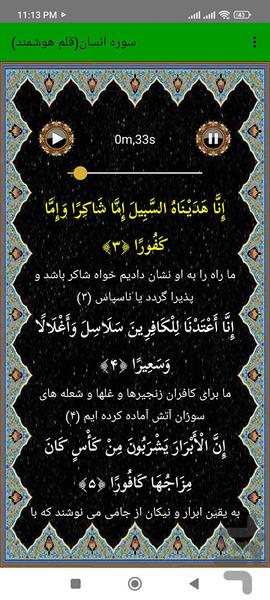 11:13 PM
سوره انسان(قلم هوشمند)
0m,33s
إِنَّا هَدَيْنَاهُ السَّبِيلَ إِمَّا شَاكِرًا وَإِمَّا
كَفُورًا ﴿۳﴾
ما راه را به او نشان دادیم خواه شاکر باشد و
پذیرا گردد یا ناسپاس (۳)
إِنَّا أَعْتَدْنَا لِلْكَافِرِينَ سَلَاسِلَ وَأَغْلَالًا
وَسَعِيرًا ﴿۴﴾
ما برای کافران زنجیرها و غلها و شعله های
سوزان آتش آماده کرده ایم (۴)
إِنَّ الْأَبْرَارَ يَشْرَبُونَ مِنْ كَأْسٍ كَانَ
مِزَاجُهَا كَافُورًا ﴿۵﴾
به یقین ابرار و نیکان از جامی می نوشند که با